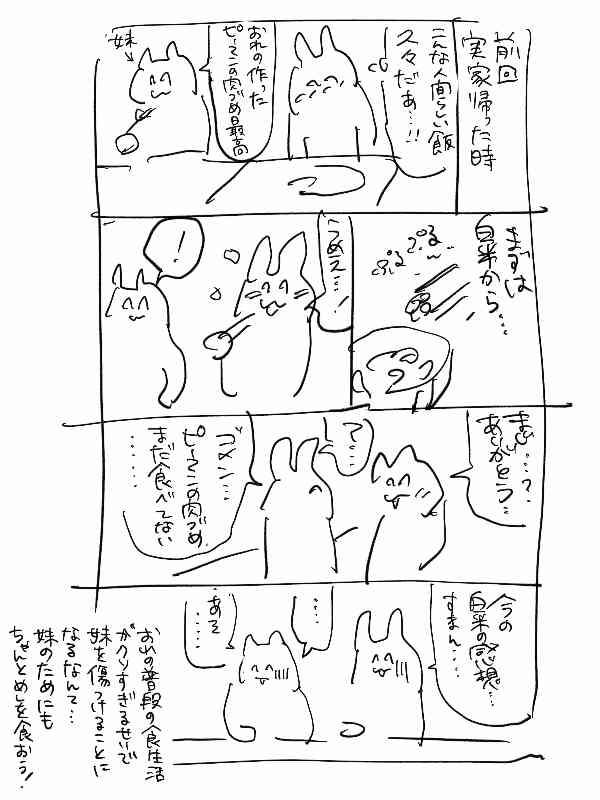 前回
実家帰った時
こんな人間らしい飯
久々だぁ…!!
おれの作った
ピーマンの肉づめ最高
妹
まずは
白米から…
ぷるぷる
うめえ…!
!
まじ…?
ありがとう…
え…
ゴメン…
ピーマンの肉づめ
まだ食べてない
……
今の
白米の感想…
すまん…
……
あそ
……
おれの普段の食生活
がクソすぎるせいで
妹を傷つけることに
なるなんて…
妹のためにも
ちゃんとめしを食おう!